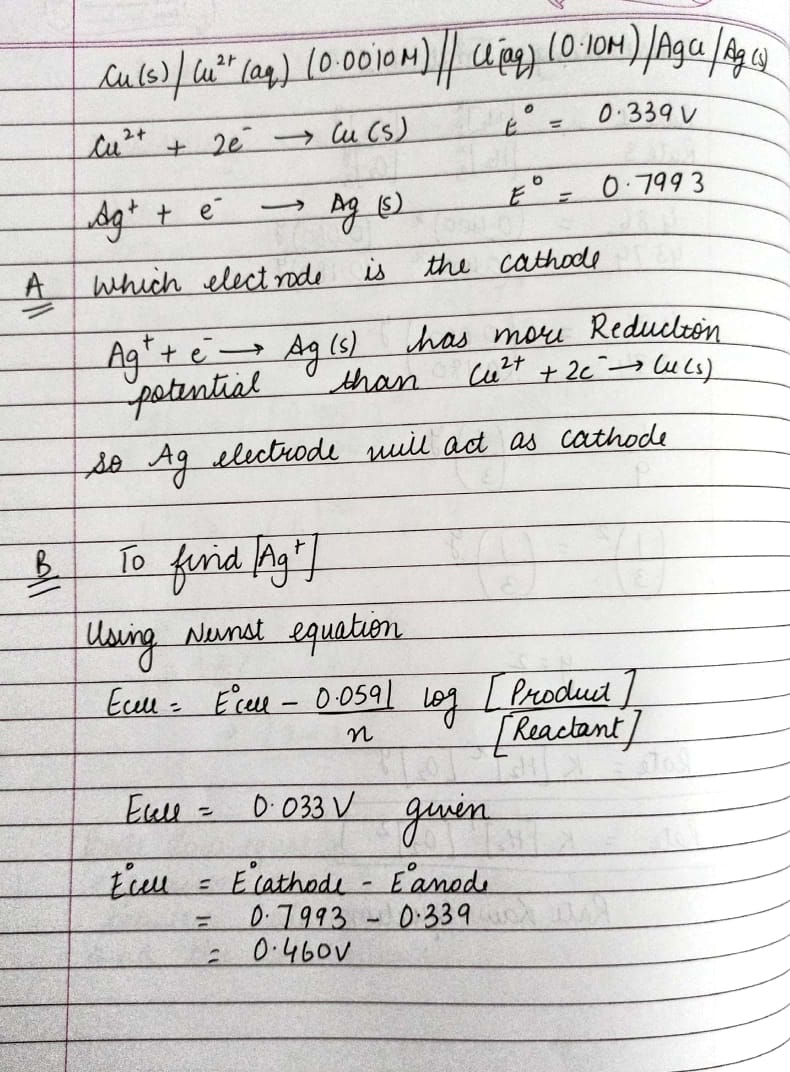 Cu(s) / Cu²⁺ (aq) (0.0010M) // Cl⁻(aq) (0.10M) / AgCl / Ag(s)
Cu²⁺ + 2e⁻ → Cu(s) E° = 0.339 V
Ag⁺ + e⁻ → Ag (s) E° = 0.7993
A Which electrode is the cathode
Ag⁺ + e⁻ → Ag (s) has more Reduction
potential than Cu²⁺ + 2e⁻ → Cu(s)
so Ag electrode will act as cathode
B To find [Ag⁺]
Using Nernst equation
Ecell = E°cell - 0.0591 log [Product]
n [Reactant]
Ecell = 0.033 V given
E°cell = E°cathode - E°anode
= 0.7993 - 0.339
= 0.460V